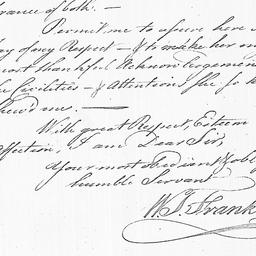 rance of both. —
Permit me to assure here
my Respect — & to make her
most thankful Acknowledgemen
Facilities — & Attentions She
shew'd me. —
With great Respect, Esteem
Affection, I am Dear Sir,
Your most obedient & obl
humble Servant
W. T. Frank